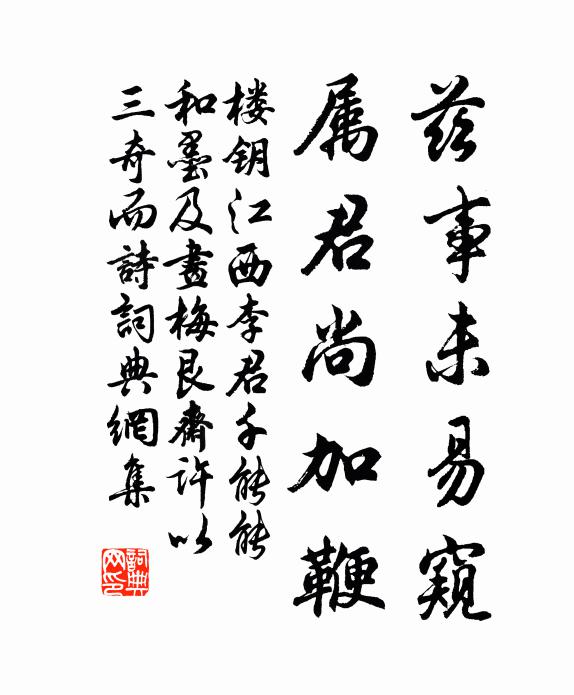 兹事未易窥
属君尚加鞭
楼钥江西李君千能能
和墨及畫梅艮齋许以
三奇而詩詞典網集
詞典
网印